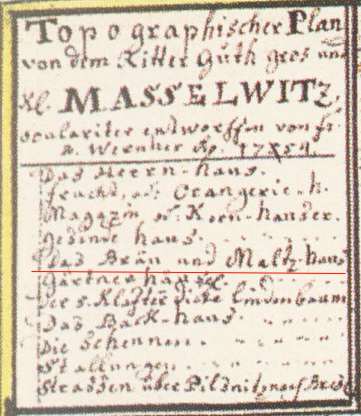 Topographischer Plan
von dem Ritter Guth gros und
Kl. MASSELWITZ,
oculariter entworffen von fr.
B. Wernher
Das Herrn-haus.
frucht, od. Orangerie-h.
Magazin od. Korn-hauser.
Gesinde haus.
Das Bräu und Maltz-haus
Gärtner häusel.
Der 5. Klafter dicke Lindenbaum
Das Back-haus.
Die Scheunen.
Stallungen.
Strassen über Pilsnitz nach Bresl